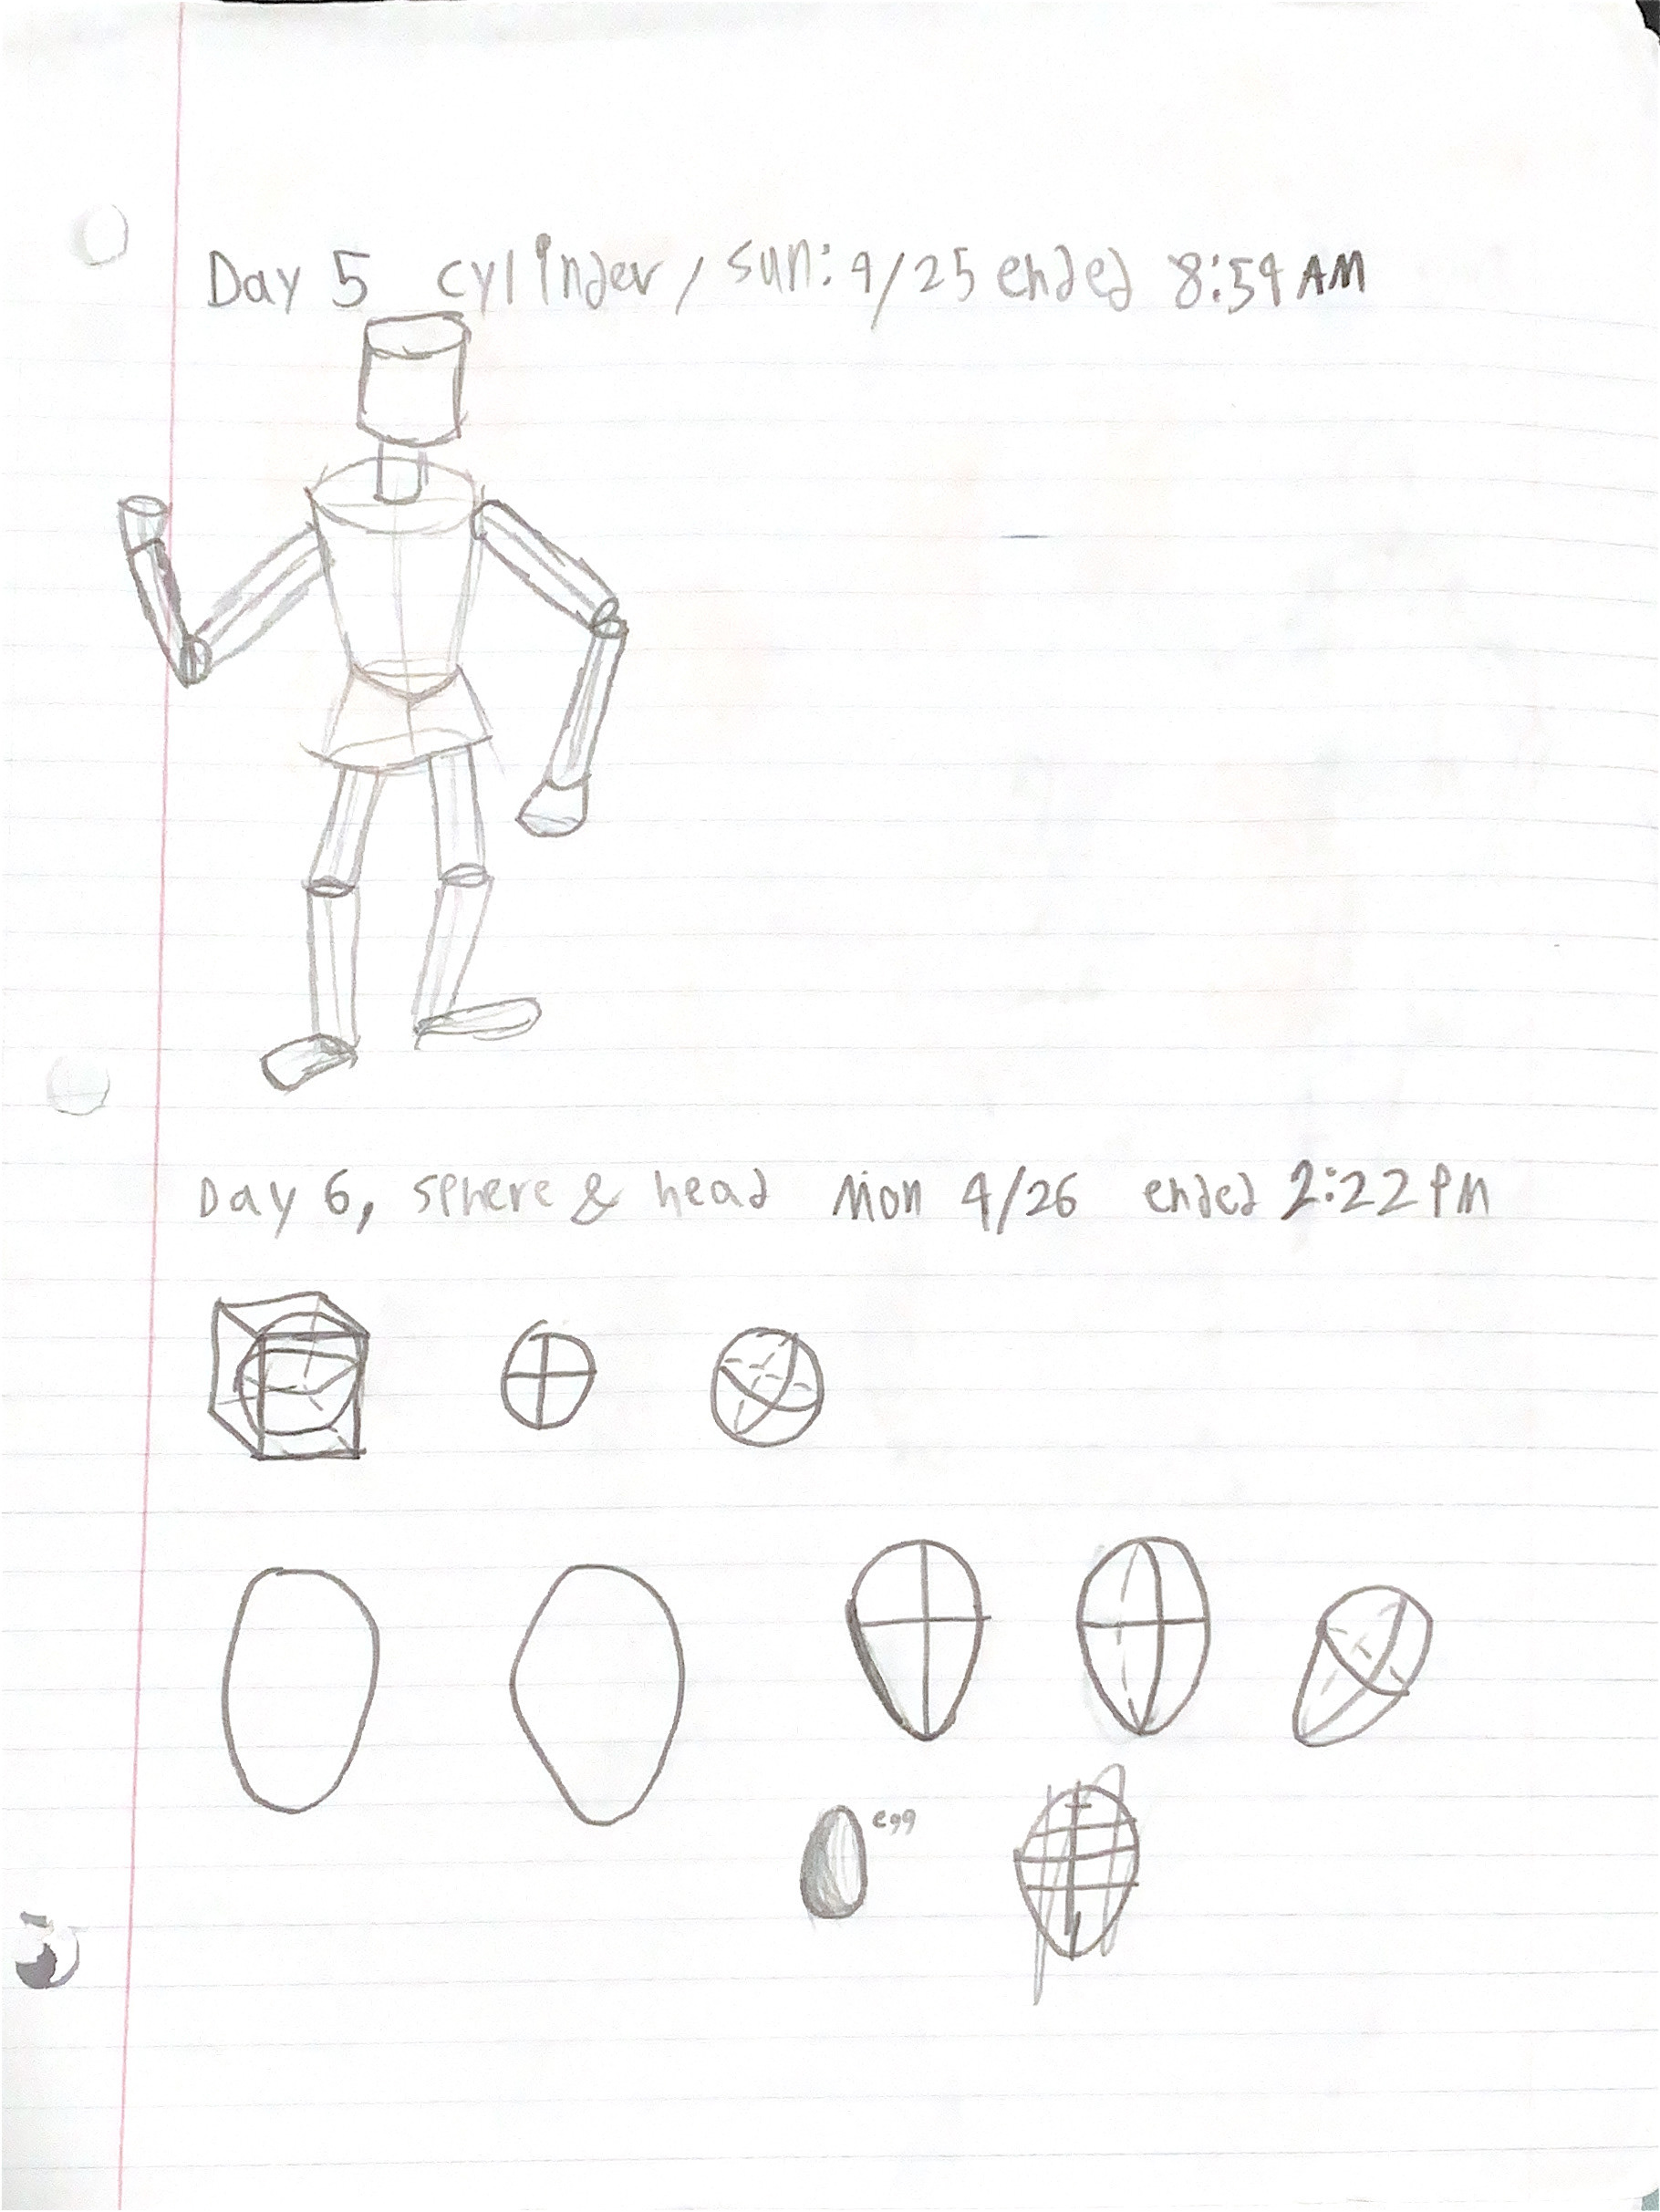 Day 5 cylinder, sun: 4/25 ended 8:54 AM
Day 6, sphere & head Mon 4/26 ended 2:22 PM
egg